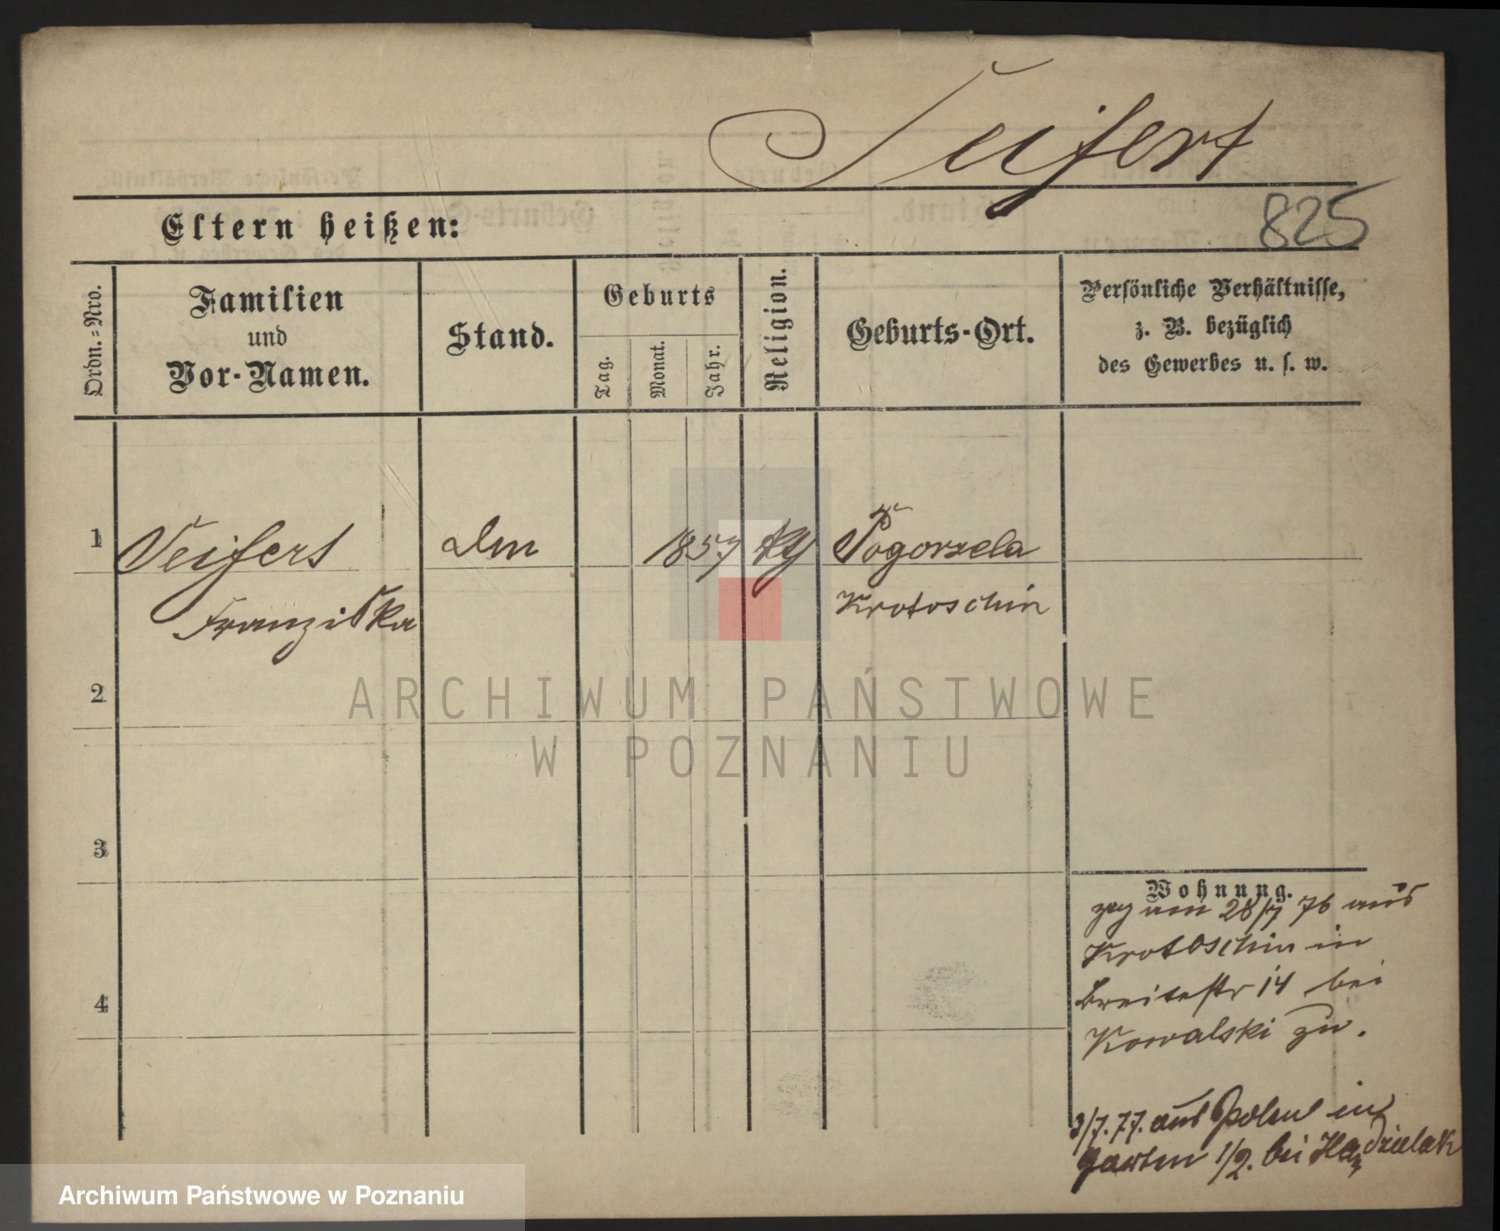 Seifert
825
Eltern heißen:
Ordn.-Nro.
Familien
und
Vor-Namen.
Stand.
Geburts
Tag.
Monat.
Jahr.
Religion.
Geburts-Ort.
Persönliche Verhältnisse,
z. B. bezüglich
des Gewerbes u. s. w.
1
Seifert
Franziska
1857
Pogorzela
Krotoschin
2
3
4
Wohnung.
zog am 28/7 76 aus
Krotoschin in
Breitestr 14 bei
Kowalski zu.
3/7. 77. aus Polen in
Garten 1/2. bei
ARCHIWUM PAŃSTWOWE
W POZNANIU
Archiwum Państwowe w Poznaniu